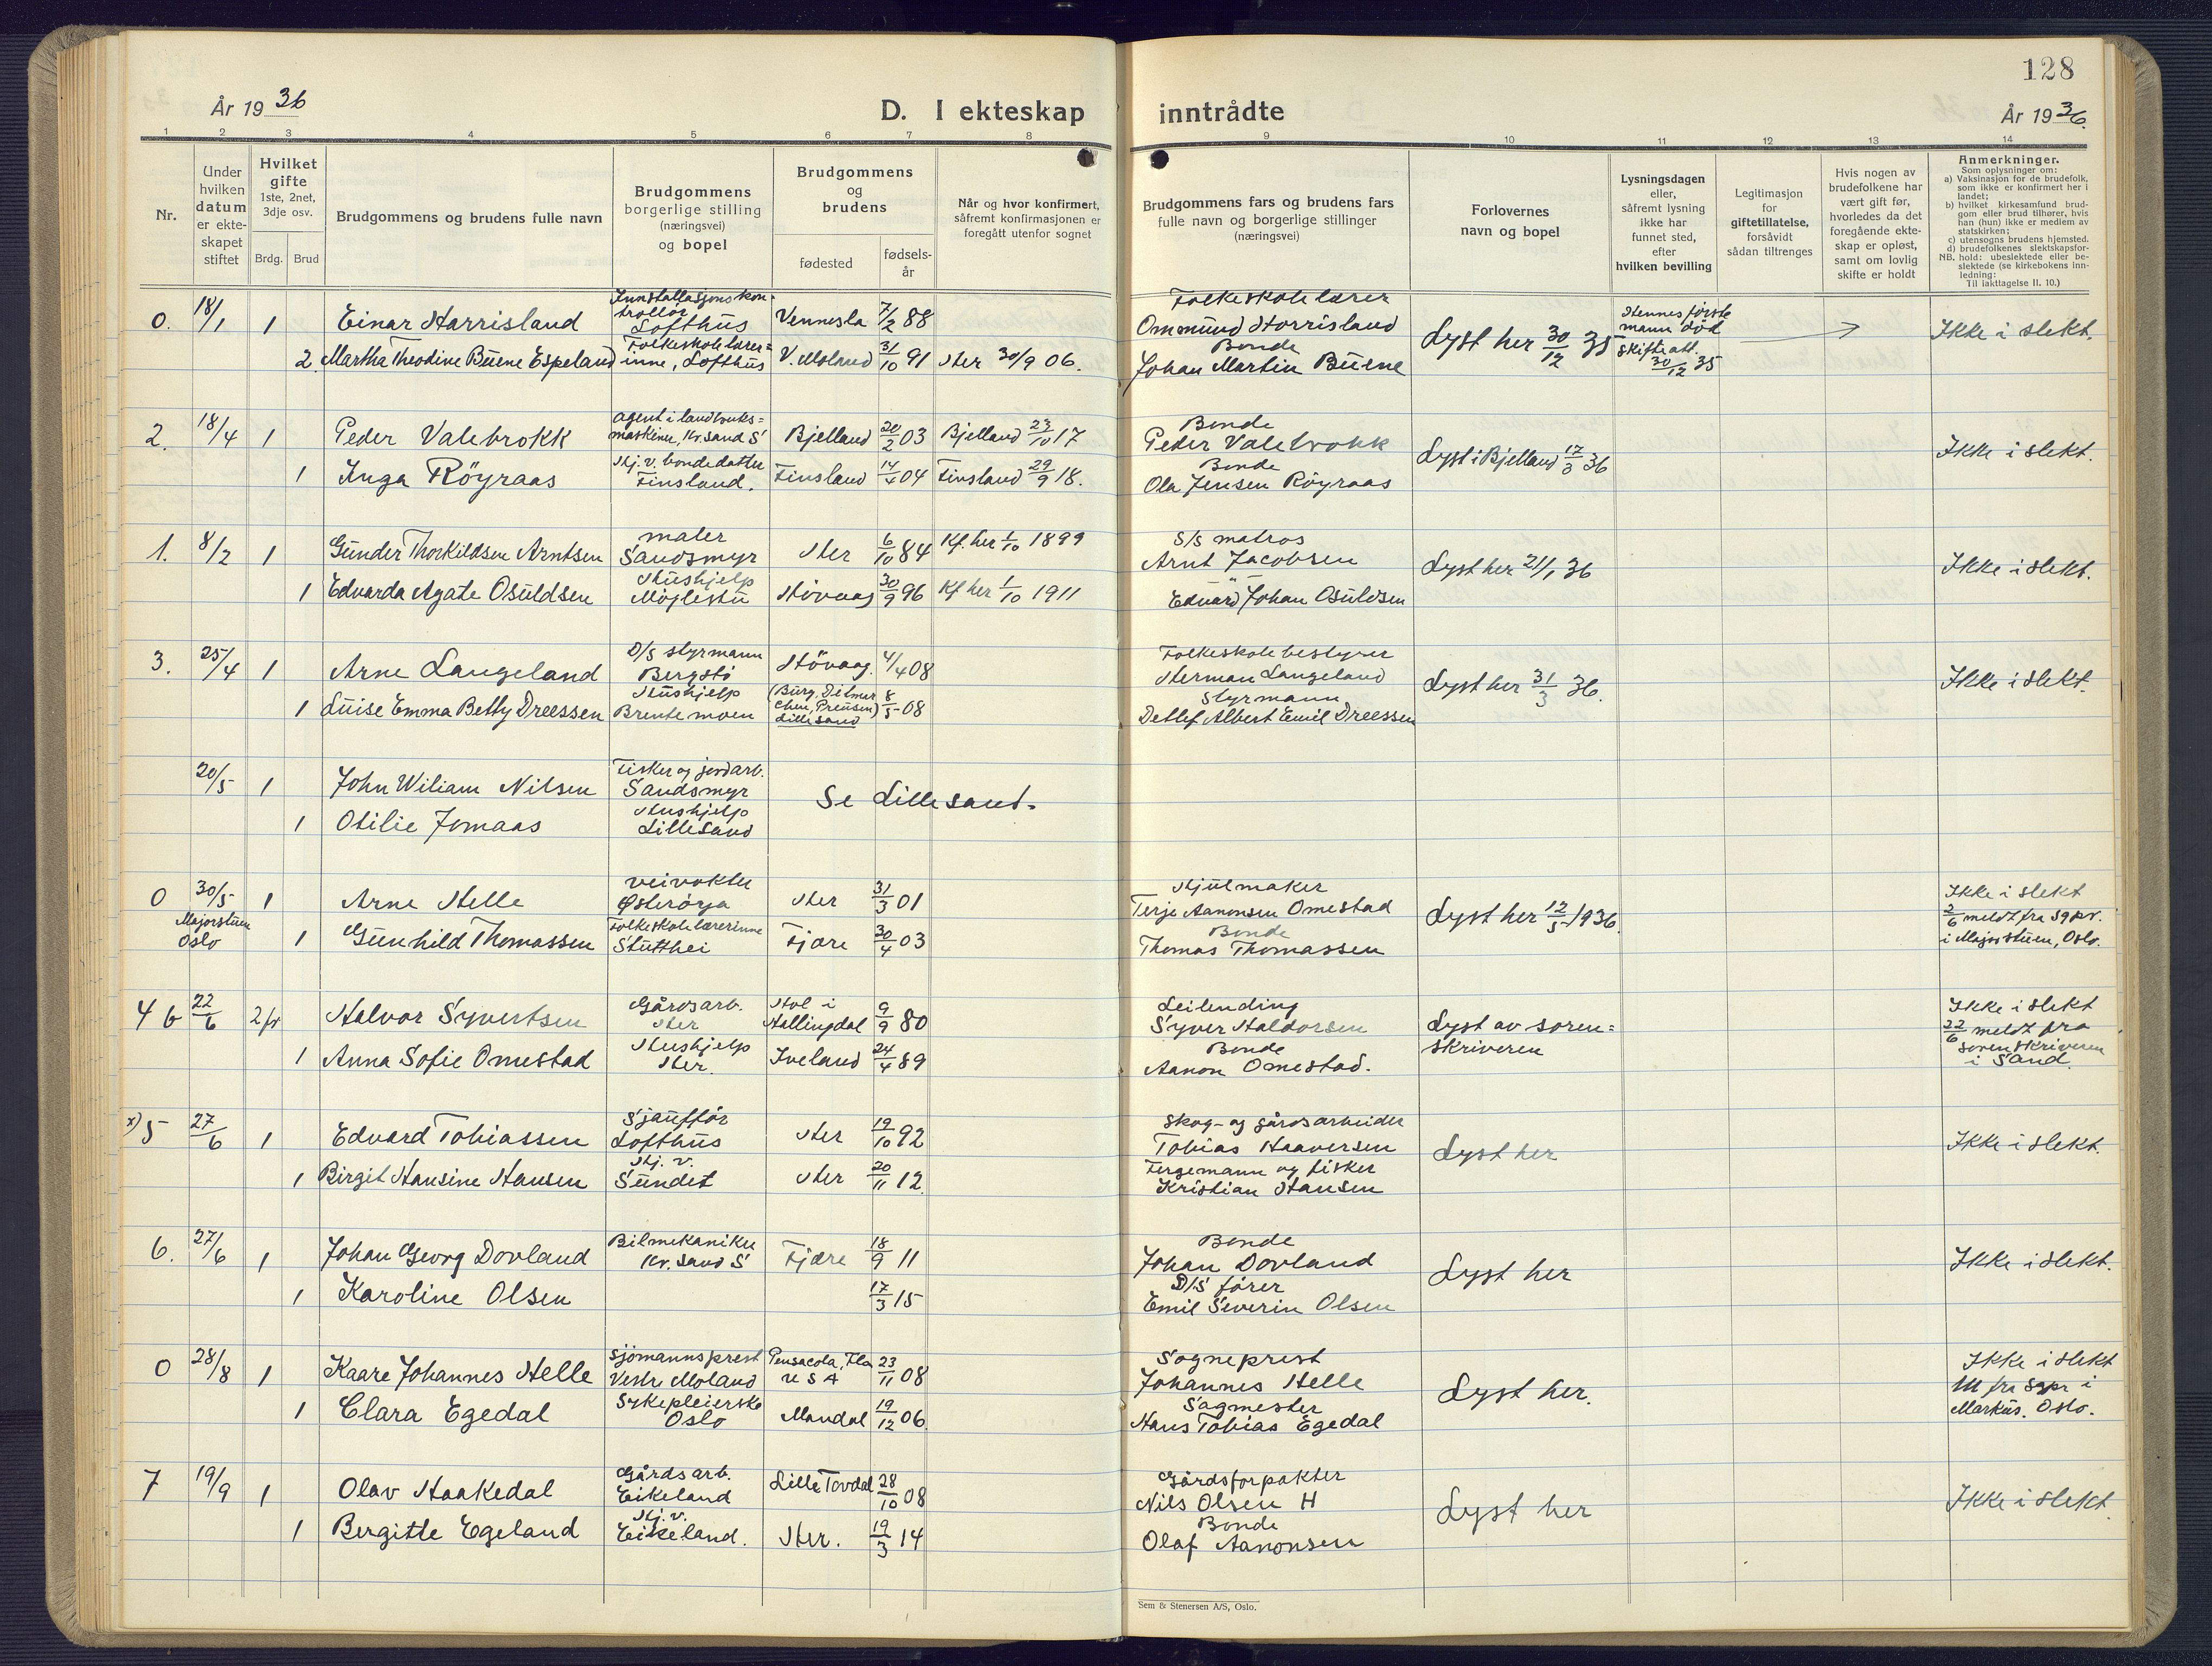 128
År 1936
D. I ekteskap inntrådte
År 1936.
1 2 3 4 5 6 7 8 9 10 11 12 13 14
Nr.
Under hvilken datum er ekteskapet stiftet
Hvilket gifte 1ste, 2net, 3dje osv.
Brdg. Brud
Brudgommens og brudens fulle navn
Brudgommens borgerlige stilling (næringsvei) og bopel
Brudgommens og brudens
fødested
fødselsår
Når og hvor konfirmert, såfremt konfirmasjonen er foregått utenfor sognet
Brudgommens fars og brudens fars fulle navn og borgerlige stillinger (næringsvei)
Forlovernes navn og bopel
Lysningsdagen eller, såfremt lysning ikke har funnet sted, efter hvilken bevilling
Legitimasjon for giftetillatelse, forsåvidt sådan tiltrenges
Hvis nogen av brudefolkene har vært gift før, hvorledes da det foregående ekteskap er opløst, samt om lovlig skifte er holdt
Anmerkninger.
Som oplysninger om:
a) Vaksinasjon for de brudefolk, som ikke er konfirmert her i landet;
b) hvilket kirkesamfund brudgom eller brud tilhører, hvis han (hun) ikke er medlem av statskirken;
c) utensogns brudens hjemsted.
d) brudefolkenes slektskapsforhold: ubeslektede eller beslektede (se kirkebokens innledning:
NB.
Til iakttagelse II. 10.)
0. 18/1 1 Einar Harrisland Innstallasjonskontrollør Lofthus Vennesla 7/2 88
Folkeskolelærer Ommund Horrisland
Lyst her 30/12 35
Hennes første mann død skifteatt. 30/12 35
Ikke i slekt.
2. Martha Theodine Buene Espeland Folkeskolelærerinne, Lofthus V. Moland 31/10 91 Her 30/9 06.
Bonde Johan Martin Buene
2. 18/4 1 Peder Valebrokk agent i landbruksmaskiner, Kr.sand S Bjelland 20/2 03 Bjelland 23/10 17
Bonde Peder Valebrokk
Lyst i Bjelland 17/3 36
Ikke i slekt.
1 Inga Röyraas Hj. v. bondedatter Finsland. Finsland 14/4 04 Finsland 29/9 18.
Bonde Ola Jensen Röyraas
1. 8/2 1 Gunder Thorkildsen Arntsen maler Sandsmyr Her 6/10 84 Kf. her 1/10 1899
S/S matros Arnt Jacobsen
Lyst her 21/1 36
Ikke i slekt.
1 Edvarda Agate Osuldsen Hushjelp Möglestu Hövaag 30/9 96 Kf her 1/10 1911
" Edvard Johan Osuldsen
3. 25/4 1 Arne Langeland D/S styrmann Bergstö Hövaag. 4/4 08
Folkeskolebestyrer Herman Langeland
Lyst her 31/3 36.
Ikke i slekt.
1 Luise Emma Betty Dreessen Hushjelp Brentemoen (Burg, Ditmarchen, Preusen) Lillesand 8/5 08
Styrmann Detlef Albert Emil Dreessen
20/5 1 John Wiliam Nilsen Fisker og jordarb. Sandsmyr
Se Lillesand.
1 Otilie Jomaas Hushjelp Lillesand
0 30/5 1 Arne Helle veivokter Österöya Her 31/3 01
Hjulmaker Terje Aanonsen Omestad
Lyst her 12/5 1936.
Ikke i slekt 2/6 meldt fra Sgpr. i Majorstuen, Oslo.
Majorstuen Oslo 1 Gunhild Thomassen Folkeskolelærerinne Stutthei Fjære 30/4 03
Bonde Thomas Thomassen
4 b 22/6 2 fr Halvor Syvertsen Gårdsarb. Her Hol i Hallingdal 9/9 80
Leilending Syver Haldorsen
Lyst av sorenskriveren
Ikke i slekt 22/6 meldt fra sorenskriveren i Sand.
1 Anna Sofie Omestad Hushjelp Her. Iveland 24/4 89
Bonde Aanon Omestad.
x) 5 27/6 1 Edvard Tobiassen Sjauffør Lofthus Her 19/10 92
Skog- og gårdsarbeider Tobias Haaversen
Lyst her
Ikke i slekt.
1 Birgit Hansine Hansen Hj. v. Sundet Her 20/11 12.
Fergemann og fisker Kristian Hansen
6. 27/6 1 Johan Georg Dovland Bilmekaniker Kr.sand S Fjære 18/9 11
Bonde Johan Dovland
Lyst her
Ikke i slekt.
1 Karoline Olsen 17/3 15
D/S fører Emil Severin Olsen
0 28/8 1 Kaare Johannes Helle Sjömannsprest Vestr. Moland Pensacola, Fla USA 23/11 08
Sogneprest Johannes Helle
Lyst her.
Ikke i slekt M fra Sgpr i Markus. Oslo.
1 Clara Egedal Sykepleierske Oslo Mandal 19/12 06.
Sagmester Hans Tobias Egedal
7 19/9 1 Olav Haakedal Gårdsarb. Eikeland Lille Tovdal 28/10 08
Gårdsforpakter Nils Olsen H
Lyst her
Ikke i slekt.
1 Bergitte Egeland Hj. v. Eikeland. Her. 19/3 14
Bonde Olaf Aanonsen
Sem & Stenersen A/S, Oslo.